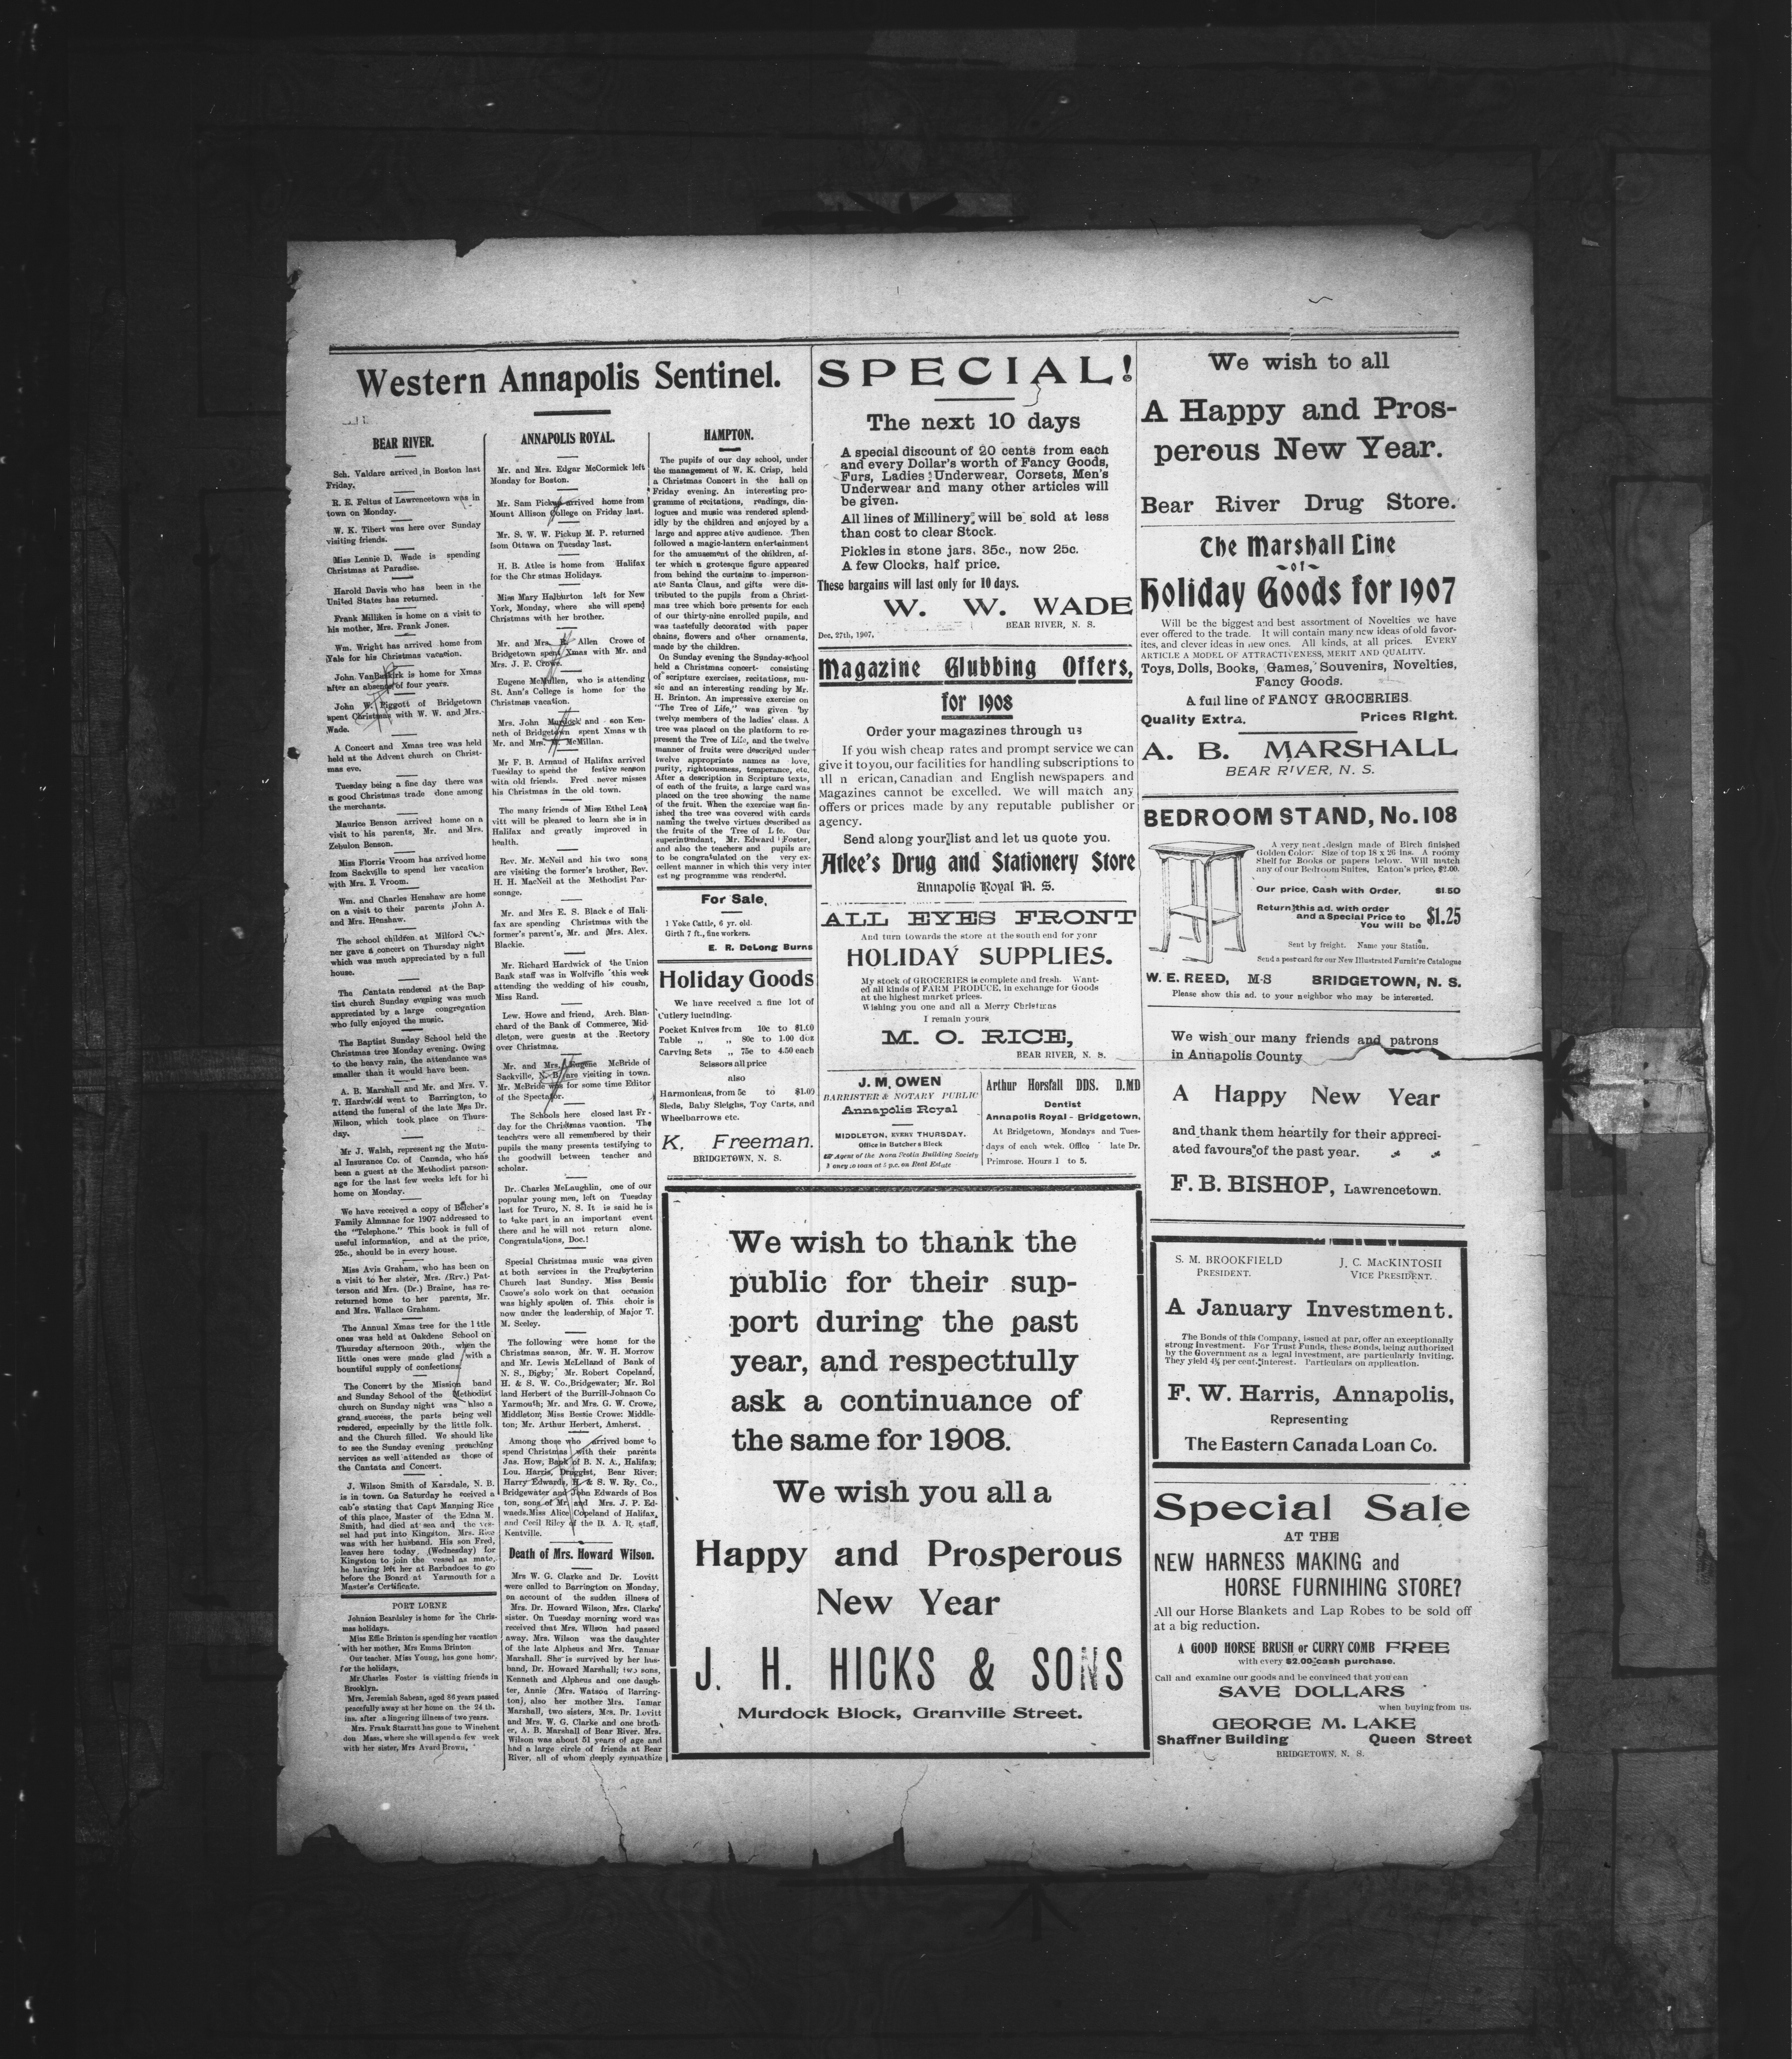 Western Annapolis Sentinel.
BEAR RIVER.
Sch. Valdare arrived in Boston last
Friday.
R. E. Feltus of Lawrencetown was in
town on Monday.
W. K. Tibert was here over Sunday
visiting friends.
Miss Lennie D. Wade is spending
Christmas at Paradise.
Harold Davis who has been in the
United States has returned.
Frank Milliken is home on a visit to
his mother, Mrs. Frank Jones.
Wm. Wright has arrived home from
Yale for his Christmas vacation.
John VanBuskirk is home for Xmas
after an absence of four years.
John W. Piggott of Bridgetown
spent Christmas with W. W. and Mrs.
Wade.
A Concert and Xmas tree was held
held at the Advent church on Christ-
mas eve.
Tuesday being a fine day there was
a good Christmas trade done among
the merchants.
Maurice Benson arrived home on a
visit to his parents, Mr. and Mrs.
Zebulon Benson.
Miss Florris Vroom has arrived home
from Sackville to spend her vacation
with Mrs. E. Vroom.
Wm. and Charles Henshaw are home
on a visit to their parents John A.
and Mrs. Henshaw.
The school children at Milford Cor-
ner gave a concert on Thursday night
which was much appreciated by a full
house.
The Cantata rendered at the Bap-
tist church Sunday evening was much
appreciated by a large congregation
who fully enjoyed the music.
The Baptist Sunday School held the
Christmas tree Monday evening. Owing
to the heavy rain, the attendance was
smaller than it would have been.
A. B. Marshall and Mr. and Mrs. V.
T. Hardwick went to Barrington, to
attend the funeral of the late Mrs Dr.
Wilson, which took place on Thurs-
day.
Mr J. Walsh, represent ng the Mutu-
al Insurance Co. of Canada, who has
been a guest at the Methodist parson-
age for the last few weeks left for hi
home on Monday.
We have received a copy of Belcher's
Family Almanac for 1907 addressed to
the "Telephone." This book is full of
useful information, and at the price,
25c., should be in every house.
Miss Avis Graham, who has been on
a visit to her sister, Mrs. (Rrv.) Pat-
terson and Mrs. (Dr.) Braine, has re-
returned home to her parents, Mr.
and Mrs. Wallace Graham.
The Annual Xmas tree for the l ttle
ones was held at Oakdene School on
Thursday afternoon 20th., when the
little ones were made glad with a
bountiful supply of confections.
The Concert by the Mission band
and Sunday School of the Methodist
church on Sunday night was also a
grand success, the parts being well
rendered, especially by the little folk.
and the Church filled. We should like
to see the Sunday evening preaching
services as well attended as those of
the Cantata and Concert.
J. Wilson Smith of Karsdale, N. B.
is in town. On Saturday he eceived a
cab'e stating that Capt Manning Rice
of this place, Master of the Edna M.
Smith, had died at sea and the ves-
sel had put into Kingston. Mrs. Rice
was with her husband. His son Fred,
leaves here today, (Wednesday) for
Kingston to join the vessel as mate,
he having left her at Barbadoes to go
before the Board at Yarmouth for a
Master's Certificate.
PORT LORNE
Johnson Beardsley is home for the Chris-
mas holidays.
Miss Effie Brinton is spending her vacation
with her mother, Mrs Emma Brinton
Our teacher, Miss Young, has gone home
for the holidays.
Mr Charles Foster is visiting friends in
Brooklyn.
Mrs. Jeremiah Sabean, aged 86 years passed
peacefully away at her home on the 24 th.
ins. after a lingering illness of two years.
Mrs. Frank Starratt has gone to Winchent
don Mass, where she will spend a few week
with her sister, Mrs Avard Brown.
ANNAPOLIS ROYAL.
Mr. and Mrs. Edgar McCormick left
Monday for Boston.
Mr. Sam Pickup arrived home from
Mount Allison College on Friday last.
Mr. S. W. W. Pickup M. P. returned
from Ottawa on Tuesday last.
H. B. Atlee is home from Halifax
for the Chr stmas Holidays.
Miss Mary Halburton left for New
York, Monday, where she will spend
Christmas with her brother.
Mr. and Mrs. Allen Crowe of
Bridgetown spent Xmas with Mr. and
Mrs. J. E. Crowe.
Eugene McMullen, who is attending
St. Ann's College is home for the
Christmas vacation.
Mrs. John Murdock and son Ken-
neth of Bridgetown spent Xmas w th
Mr. and Mrs. McMillan.
Mr F. B. Armaud of Halifax arrived
Tuesday to spend the festive season
with old friends. Fred never misses
his Christmas in the old town.
The many friends of Miss Ethel Lea
vitt will be pleased to learn she is in
Halifax and greatly improved in
health.
Rev. Mr. McNeil and his two sons
are visiting the former's brother, Rev.
H. H. MacNeil at the Methodist Par-
sonage.
Mr. and Mrs E. S. Black e of Hali-
fax are spending Christmas with the
former's parent's, Mr. and Mrs. Alex.
Blackie.
Mr. Richard Hardwick of the Union
Bank staff was in Wolfville this week
attending the wedding of his cousin,
Miss Rand.
Lew. Howe and friend, Arch. Blan-
chard of the Bank of Commerce, Mid-
dleton, were guests at the Rectory
over Christmas.
Mr. and Mrs. Eugene McBride of
Sackville, N. B. are visiting in town.
Mr. McBride was for some time Editor
of the Spectator.
The Schools here closed last Fr -
day for the Christmas vacation. The
teachers were all remembered by their
pupils the many presents testifying to
the goodwill between teacher and
scholar.
Dr. Charles McLaughlin, one of our
popular young men, left on Tuesday
last for Truro, N. S. It is said he is
to take part in an important event
there and he will not return alone.
Congratulations, Doc.!
Special Christmas music was given
at both services in the Presbyterian
Church last Sunday. Miss Bessie
Csowe's solo work on that occasion
was highly spolien of. This choir is
now under the leadership of Major T.
M. Seeley.
The following were home for the
Christmas season, Mr. W. H. Morrow
and Mr. Lewis McLelland of Bank of
N. S., Digby; Mr. Robert Copeland,
H. & S. W. Co., Bridgewater; Mr. Rol
land Herbert of the Burrill-Johnson Co
Yarmouth; Mr. and Mrs. G. W. Crowe,
Middleton; Miss Bessie Crowe: Middle-
ton; Mr. Arthur Herbert, Amherst.
Among those who arrived home to
spend Christmas with their parents
Jas. How, Bank of B. N. A., Halifax;
Lou. Harris, Druggist, Bear River;
Harry Edwards, H. & S. W. Ry. Co.,
Bridgewater and John Edwards of Bos
ton, sons of Mr. and Mrs. J. P. Ed-
waeds. Miss Alice Copeland of Halifax,
and Cecil Riley of the D. A. R. staff,
Kentville.
Death of Mrs. Howard Wilson.
Mrs W. G. Clarke and Dr. Lovitt
were called to Barrington on Monday,
on account of the sudden illness of
Mrs. Dr. Howard Wilson, Mrs. Clarke'
sister. On Tuesday morning word was
received that Mrs. Wilson had passed
away. Mrs. Wilson was the daughter
of the late Alpheus and Mrs. Tamar
Marshall. She is survived by her hus-
band, Dr. Howard Marshall; two sons,
Kenneth and Alpheus and one daugh-
ter, Annie (Mrs. Watson of Barring-
ton), also her mother Mrs. Tamar
Marshall, two sisters, Mrs. Dr. Lovitt
and Mrs. W. G. Clarke and one broth-
er, A. B. Marshall of Bear River. Mrs.
Wilson was about 51 years of age and
had a large circle of friends at Bear
River, all of whom deeply sympathize
HAMPTON.
The pupils of our day school, under
the management of W. K. Crisp, held
a Christmas Concert in the hall on
Friday evening. An interesting pro-
gramme of recitations, readings, dia-
logues and music was rendered splend-
idly by the children and enjoyed by a
large and apprec ative audience. Then
followed a magic-lantern entertainment
for the amusement of the children, af-
ter which a grotesque figure appeared
from behind the curtains to imperson-
ate Santa Claus, and gifts were dis-
tributed to the pupils from a Christ-
mas tree which bore presents for each
of our thirty-nine enrolled pupils, and
was tastefully decorated with paper
chains, flowers and other ornaments,
made by the children.
On Sunday evening the Sunday-school
held a Christmas concert consisting
of scripture exercises, recitations, mu-
sic and an interesting reading by Mr.
H. Brinton. An impressive exercise on
"The Tree of Life," was given by
twelve members of the ladies' class. A
tree was placed on the platform to re-
present the Tree of Life, and the twelve
manner of fruits were described under
twelve appropriate names as love,
purity, righteousness, temperance, etc.
After a description in Scripture texts,
of each of the fruits, a large card was
placed on the tree showing the name
of the fruit. When the exercise was fin-
ished the tree was covered with cards
naming the twelve virtues described as
the fruits of the Tree of L fe. Our
superintendant, Mr. Edward Foster,
and also the teachers and pupils are
to be congratulated on the very ex-
cellent manner in which this very inter
est ng programme was rendered.
For Sale,
1 Yoke Cattle, 6 yr. old.
Girth 7 ft., fine workers.
E. R. DeLong Burns
Holiday Goods
We have received a fine lot of
Cutlery including.
Pocket Knives from 10c to $1.00
Table „ „ 80c to 1.00 doz
Carving Sets „ 75c to 4.50 each
Scissors all price
also
Harmonicas, from 5c to $1.00
Sleds, Baby Sleighs, Toy Carts, and
Wheelbarrows etc.
K. Freeman.
BRIDGETOWN, N. S.
SPECIAL!
The next 10 days
A special discount of 20 cents from each
and every Dollar's worth of Fancy Goods,
Furs, Ladies Underwear, Corsets, Men's
Underwear and many other articles will
be given.
All lines of Millinery will be sold at less
than cost to clear Stock.
Pickles in stone jars, 35c., now 25c.
A few Clocks, half price.
These bargains will last only for 10 days.
W. W. WADE
BEAR RIVER, N. S.
Dec. 27th, 1907,
Magazine Glubbing Offers,
for 1908
Order your magazines through us
If you wish cheap rates and prompt service we can
give it to you, our facilities for handling subscriptions to
all n erican, Canadian and English newspapers and
Magazines cannot be excelled. We will match any
offers or prices made by any reputable publisher or
agency.
Send along your list and let us quote you.
Atlee's Drug and Stationery Store
Annapolis Royal N. S.
ALL EYES FRONT
And turn towards the store at the south end for your
HOLIDAY SUPPLIES.
My stock of GROCERIES is complete and fresh. Want-
ed all kinds of FARM PRODUCE, in exchange for Goods
at the highest market prices.
Wishing you one and all a Merry Christmas
I remain yours
M. O. RICE,
BEAR RIVER, N. S.
J. M. OWEN
BARRISTER & NOTARY PUBLIC
Annapolis Royal
MIDDLETON, EVERY THURSDAY.
Office in Butcher's Block
Agent of the Nova Scotia Building Society
Money to loan at 5 p.c. on Real Estate
Arthur Horsfall DDS. D.MD
Dentist
Annapolis Royal - Bridgetown,
At Bridgetown, Mondays and Tues-
days of each week. Office late Dr.
Primrose. Hours 1 to 5.
We wish to thank the
public for their sup-
port during the past
year, and respectfully
ask a continuance of
the same for 1908.
We wish you all a
Happy and Prosperous
New Year
J. H. HICKS & SONS
Murdock Block, Granville Street.
We wish to all
A Happy and Pros-
perous New Year.
Bear River Drug Store.
The Marshall Line
-of-
Holiday Goods for 1907
Will be the biggest and best assortment of Novelties we have
ever offered to the trade. It will contain many new ideas of old favor-
ites, and clever ideas in new ones. All kinds, at all prices. EVERY
ARTICLE A MODEL OF ATTRACTIVENESS, MERIT AND QUALITY.
Toys, Dolls, Books, Games, Souvenirs, Novelties,
Fancy Goods.
A full line of FANCY GROCERIES.
Quality Extra. Prices Right.
A. B. MARSHALL
BEAR RIVER, N. S.
BEDROOM STAND, No. 108
A very neat design made of Birch finished
Golden Color. Size of top 18 x 26 ins. A roomy
Shelf for Books or papers below. Will match
any of our Bedroom Suites, Eaton's price, $2.00.
Our price, Cash with Order, $1.50
Return this ad. with order
and a Special Price to
You will be $1.25
Sent by freight. Name your Station.
Send a postcard for our New Illustrated Furnit're Catalogue
W. E. REED, M-S BRIDGETOWN, N. S.
Please show this ad. to your neighbor who may be interested.
We wish our many friends and patrons
in Annapolis County
A Happy New Year
and thank them heartily for their appreci-
ated favours of the past year.
F. B. BISHOP, Lawrencetown.
S. M. BROOKFIELD
PRESIDENT.
J. C. MACKINTOSH
VICE PRESIDENT.
A January Investment.
The Bonds of this Company, issued at par, offer an exceptionally
strong investment. For Trust Funds, these Bonds, being authorized
by the Government as a legal investment, are particularly inviting.
They yield 4½ per cent. interest. Particulars on application.
F. W. Harris, Annapolis,
Representing
The Eastern Canada Loan Co.
Special Sale
AT THE
NEW HARNESS MAKING and
HORSE FURNIHING STORE?
All our Horse Blankets and Lap Robes to be sold off
at a big reduction.
A GOOD HORSE BRUSH or CURRY COMB FREE
with every $2.00 cash purchase.
Call and examine our goods and be convinced that you can
SAVE DOLLARS
when buying from us.
GEORGE M. LAKE
Shaffner Building Queen Street
BRIDGETOWN, N. S.